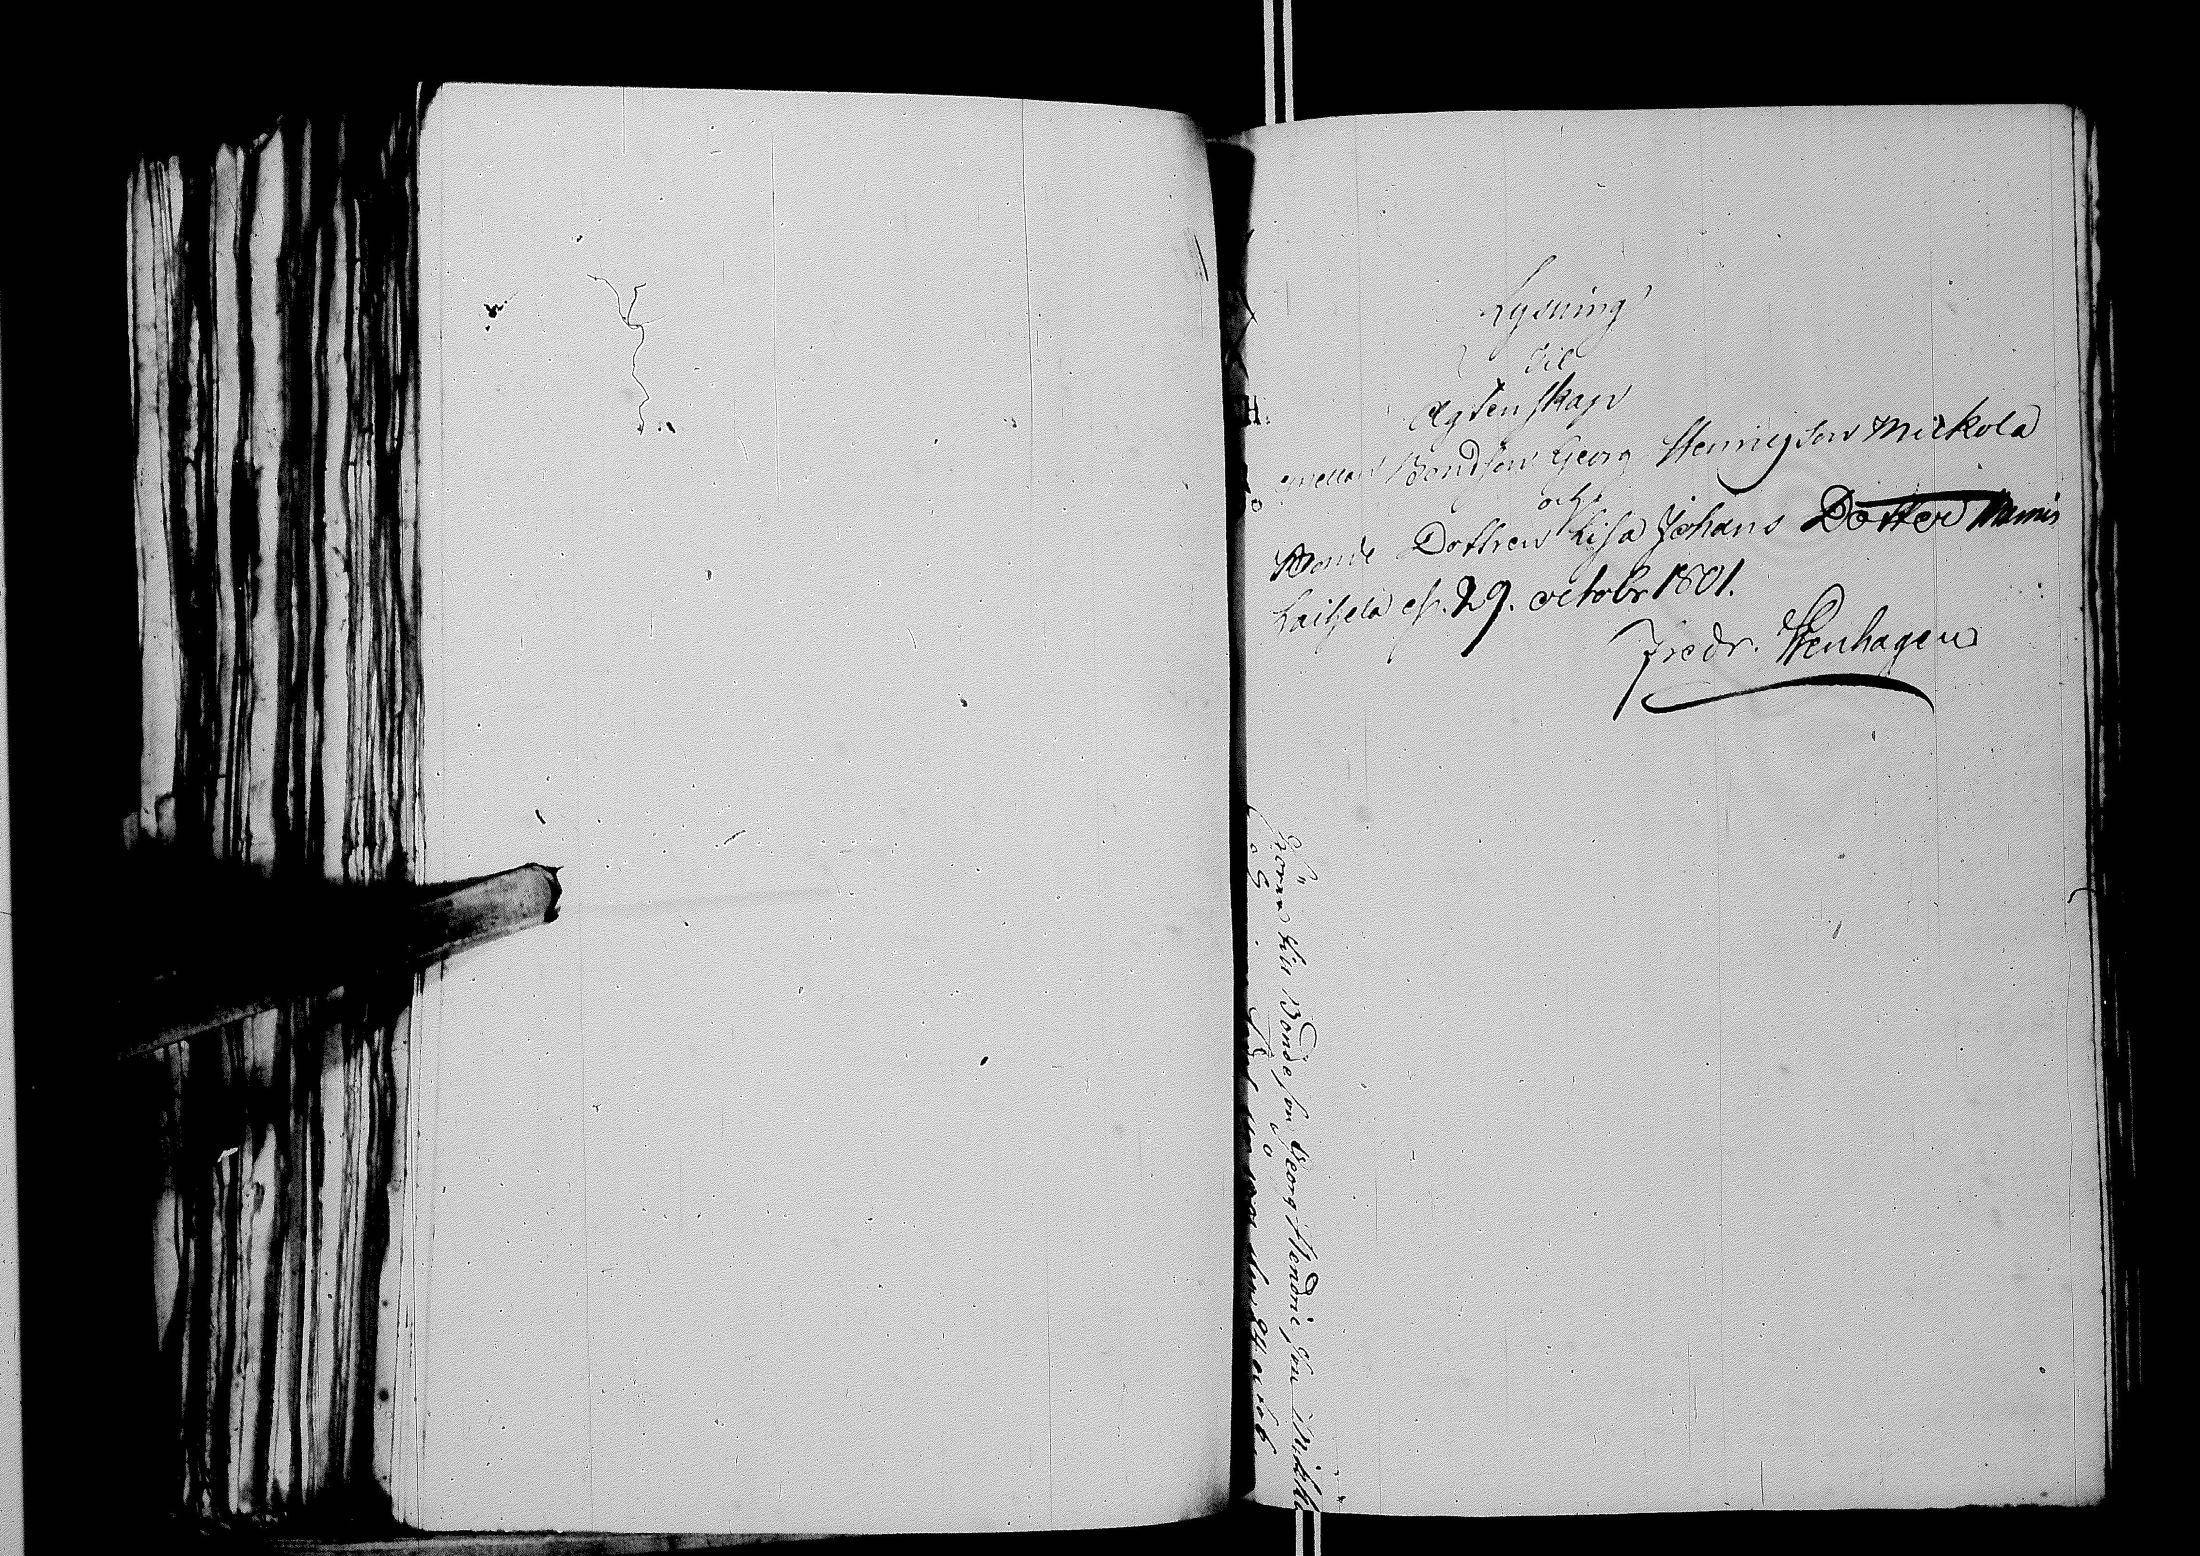 Lysning
til
Ägtenskap
mellan Bondson Georg Henricson Mickola
och
Bonde Dottren Lisa Johans Dotter
Laihela d. 29. octobr 1801.
Fredr. Stenhagen
till Bonde son Georg Hendric son